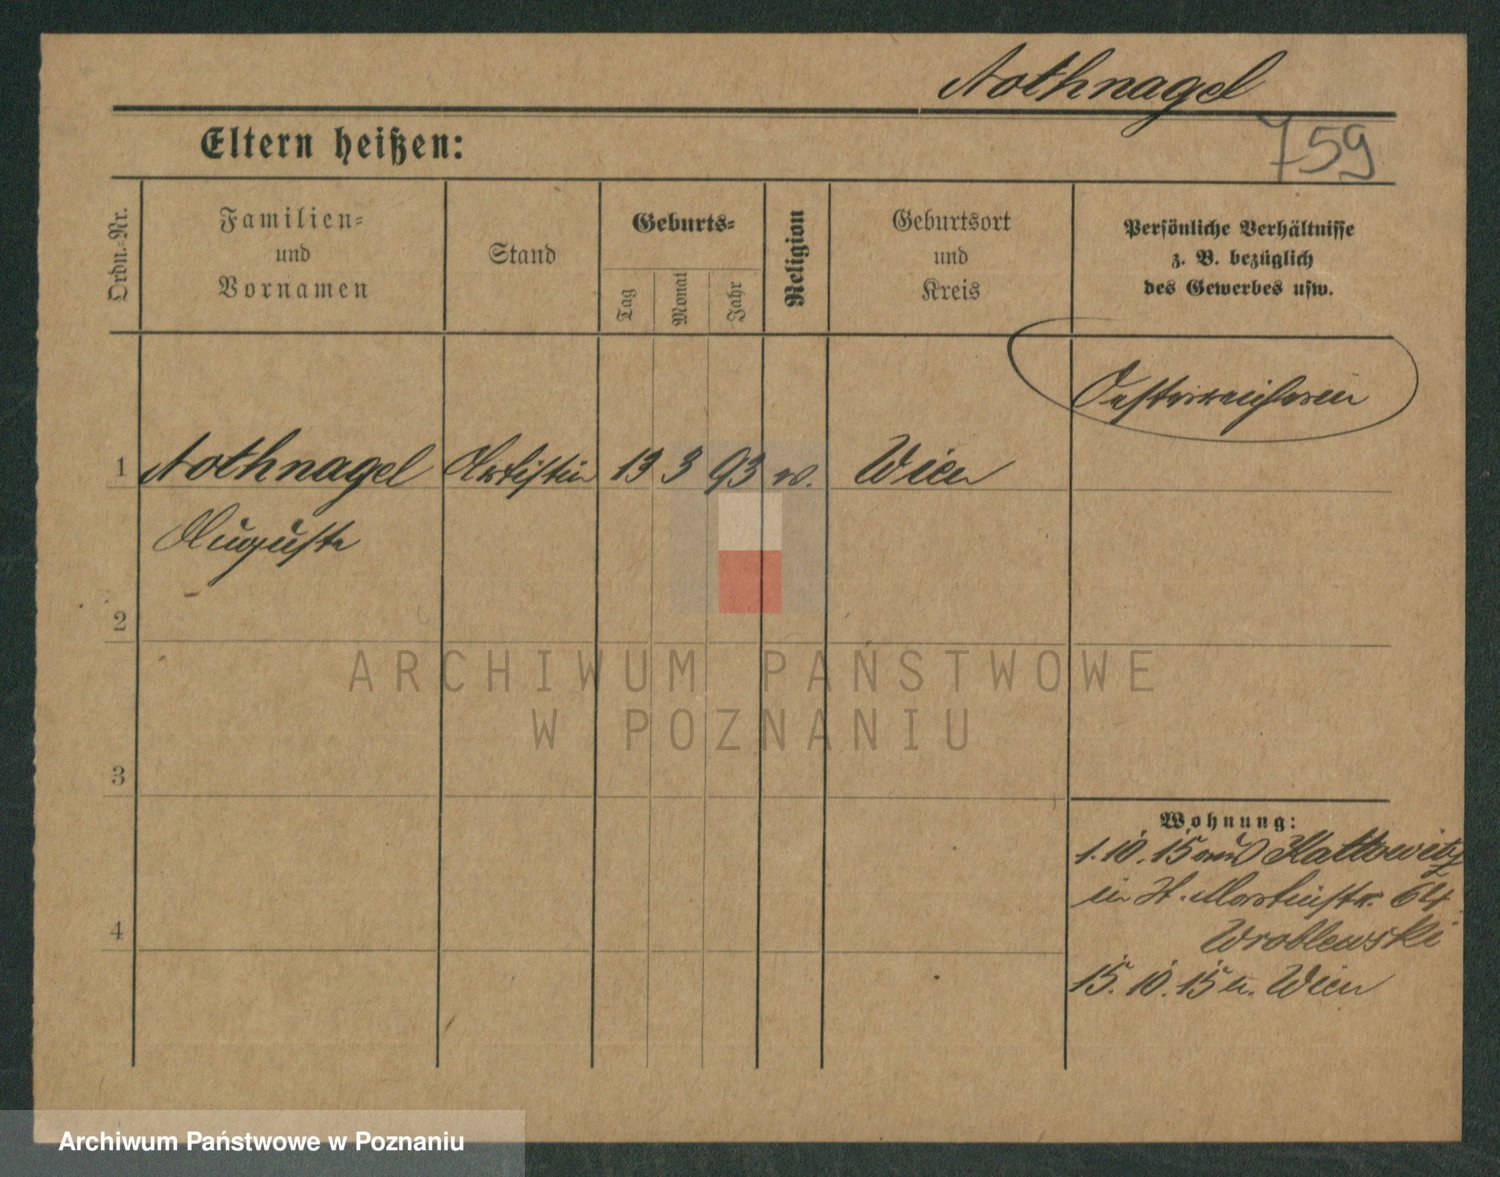 Nothnagel
759
Eltern heißen:
Ordn.=Nr.
Familien=
und
Vornamen
Stand
Geburts=
Tag
Monat
Jahr
Religion
Geburtsort
und
Kreis
Persönliche Verhältnisse
z. B. bezüglich
des Gewerbes usw.
Oesterreicherin
1 Nothnagel Artistin 13 3 93 Wien
Auguste
2
3
4
Wohnung:
1.10.15 aus Kattowitz
in St. Martinstr. 64
Wroblewski
15.10.15 n. Wien
ARCHIWUM PAŃSTWOWE
W POZNANIU
Archiwum Państwowe w Poznaniu